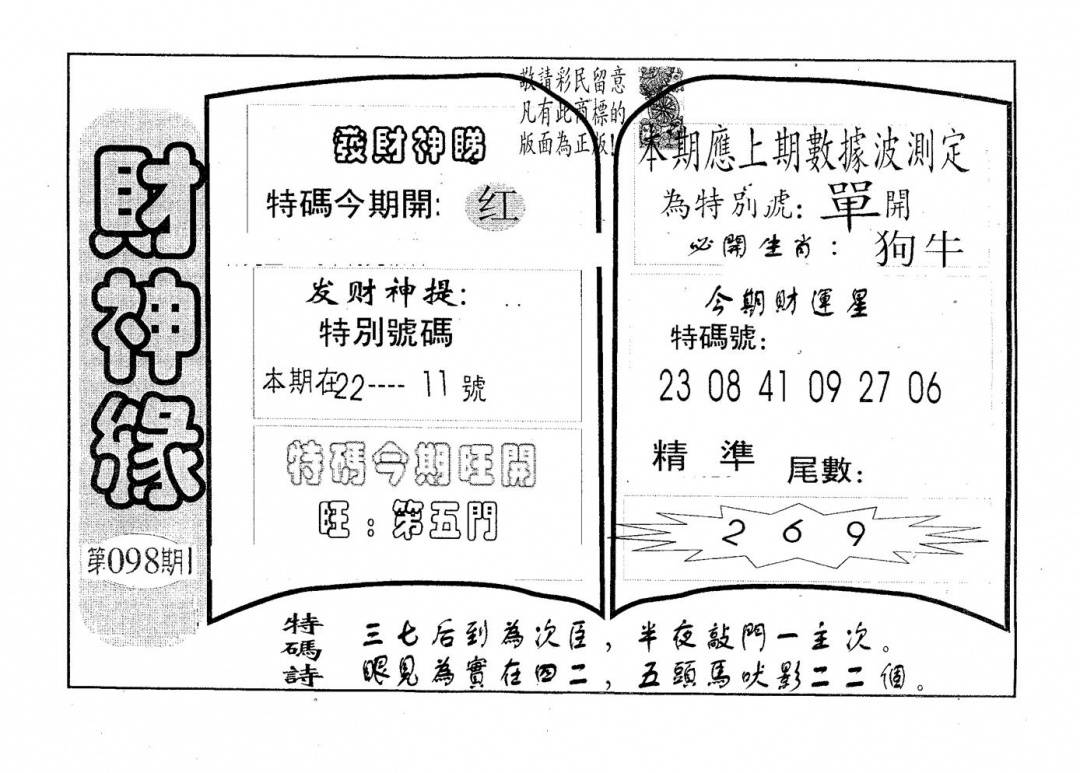 財神緣
第098期
敬請彩民留意
凡有此商標的
版面為正版!
發財神睇
特碼今期開: 红
发财神提:
特別號碼
本期在22----11號
特碼今期旺開
旺:第五門
本期應上期數據波測定
為特別虎: 單開
必開生肖: 狗牛
今期財運星
特碼號:
23 08 41 09 27 06
精準 尾數:
2 6 9
特碼詩
三七后到為次臣,半夜敲門一主次。
眼見為實在四二,五頭馬吠影二二個。